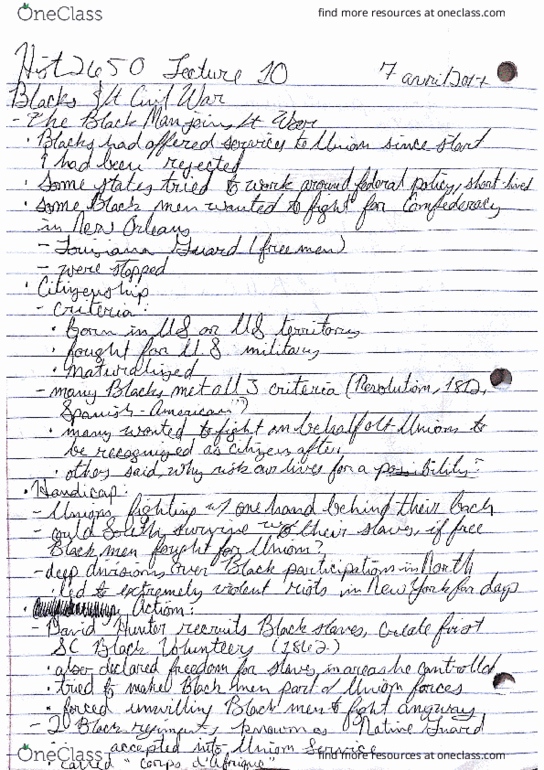 OneClass
find more resources at oneclass.com
Hist 2650 Lecture 10
7 avril 2017
Blacks & the Civil War
- The Black Man joins the War
· Blacks had offered services to Union since start
& had been rejected
· Some states tried to work around federal policy, short-lived
· some Black men wanted to fight for Confederacy
in New Orleans
- Louisiana Guard (free men)
- were stopped
· Citizenship
- criteria:
· born in US or US territories
· fought for U.S military
· naturalized
- many Blacks met all 3 criteria (Revolution, 1812,
Spanish-American)
· many wanted to fight on behalf of the Unions to
be recognized as citizens after
· others said, why risk our lives for a possibility?
· Handicap:
- Unions fighting w/ one hand behind their back
- could South survive w/o their slaves, if free
Black men fought for Union?
- deep divisions over Black participation in North
· led to extremely violent riots in New York for days
· Action:
- David Hunter recruits Black slaves, create first
SC Black Volunteers (1862)
· also declared freedom for slaves in areas he controlled
· tried to make Black men part of Union forces
· forced unwilling Black men to fight anyway
- 2 Black regiments, known as Native Guard
accepted into Union Service
· called "corps d'Afrique"
OneClass
find more resources at oneclass.com